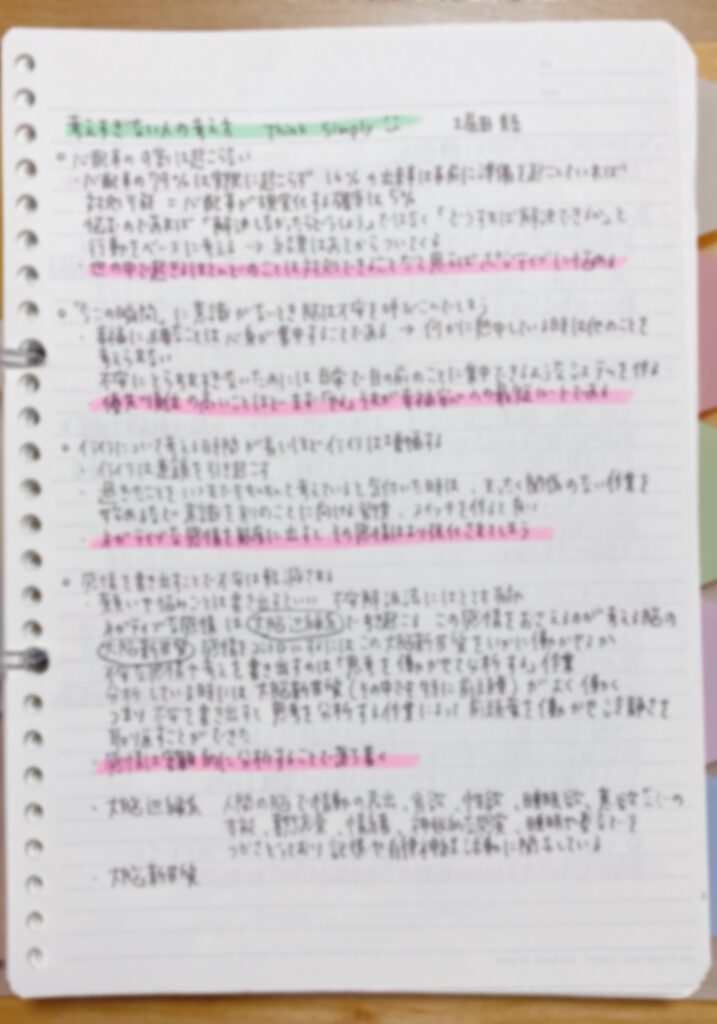 考えすぎない人の考え方 Think Simply 堀田 秀吾
心配事の9割は起こらない
・心配事の79%は実際に起こらず 16%の出来事は事前に準備を起こしていれば
対処可能 = 心配事が現実化する確率は5%
なのであれば「解決しなかったらどうしよう」ではなく「どうすれば解決できるか」と
行動をベースに考える → 結果はあとからついてくる
世の中で起きるほとんどのことは対処できること
「今この瞬間」に意識がないとき脳は不安を呼びこんでしまう
・幸福に必要なことは心身が集中することである → 何かに熱中している時は他のことを
考えられない
不安にとらわれすぎないためには日常で目の前のことに集中できるようなシステムを作る
優先順位の高いことはとにかく「やる」それが幸福
イライラについて考える時間が長いほどイライラは増幅する
・イライラは悪循環を引き起こす
・過ぎたことをいつまでも考えていると気付いた時は、まったく関係のない作業を
始めるなどで意識を別のことに向ける習慣、スイッチを作ると良い
・ネガティブな感情を解放に出すと その感情はより強化されてしまう
感情を書き出すことで不安は軽減される
・悩みごとは書き出すといい 不安解消法にはとても有効
ネガティブな感情は大脳辺縁系で起こる この感情をおさえるのが考える脳の
大脳新皮質 感情をコントロールするにはこの大脳新皮質をいかに働かせるか
不安な感情や考えを書き出すのは「思考を働かせて分析する」作業
分析している時には大脳新皮質(その中でも特に前頭葉)がよく働く
つまり不安を書き出すと思考を分析する作業によって前頭葉を働かせ冷静さを
取り戻すことができた
・感情は客観的に分析することで落ち着く
・大脳辺縁系 人間の脳で情動の表出、食欲、性欲、睡眠欲、意欲などの
本能、喜怒哀楽、情緒、神秘的な感覚、睡眠や夢などを
つかさどっており記憶や自律神経活動に関与している
・大脳新皮質